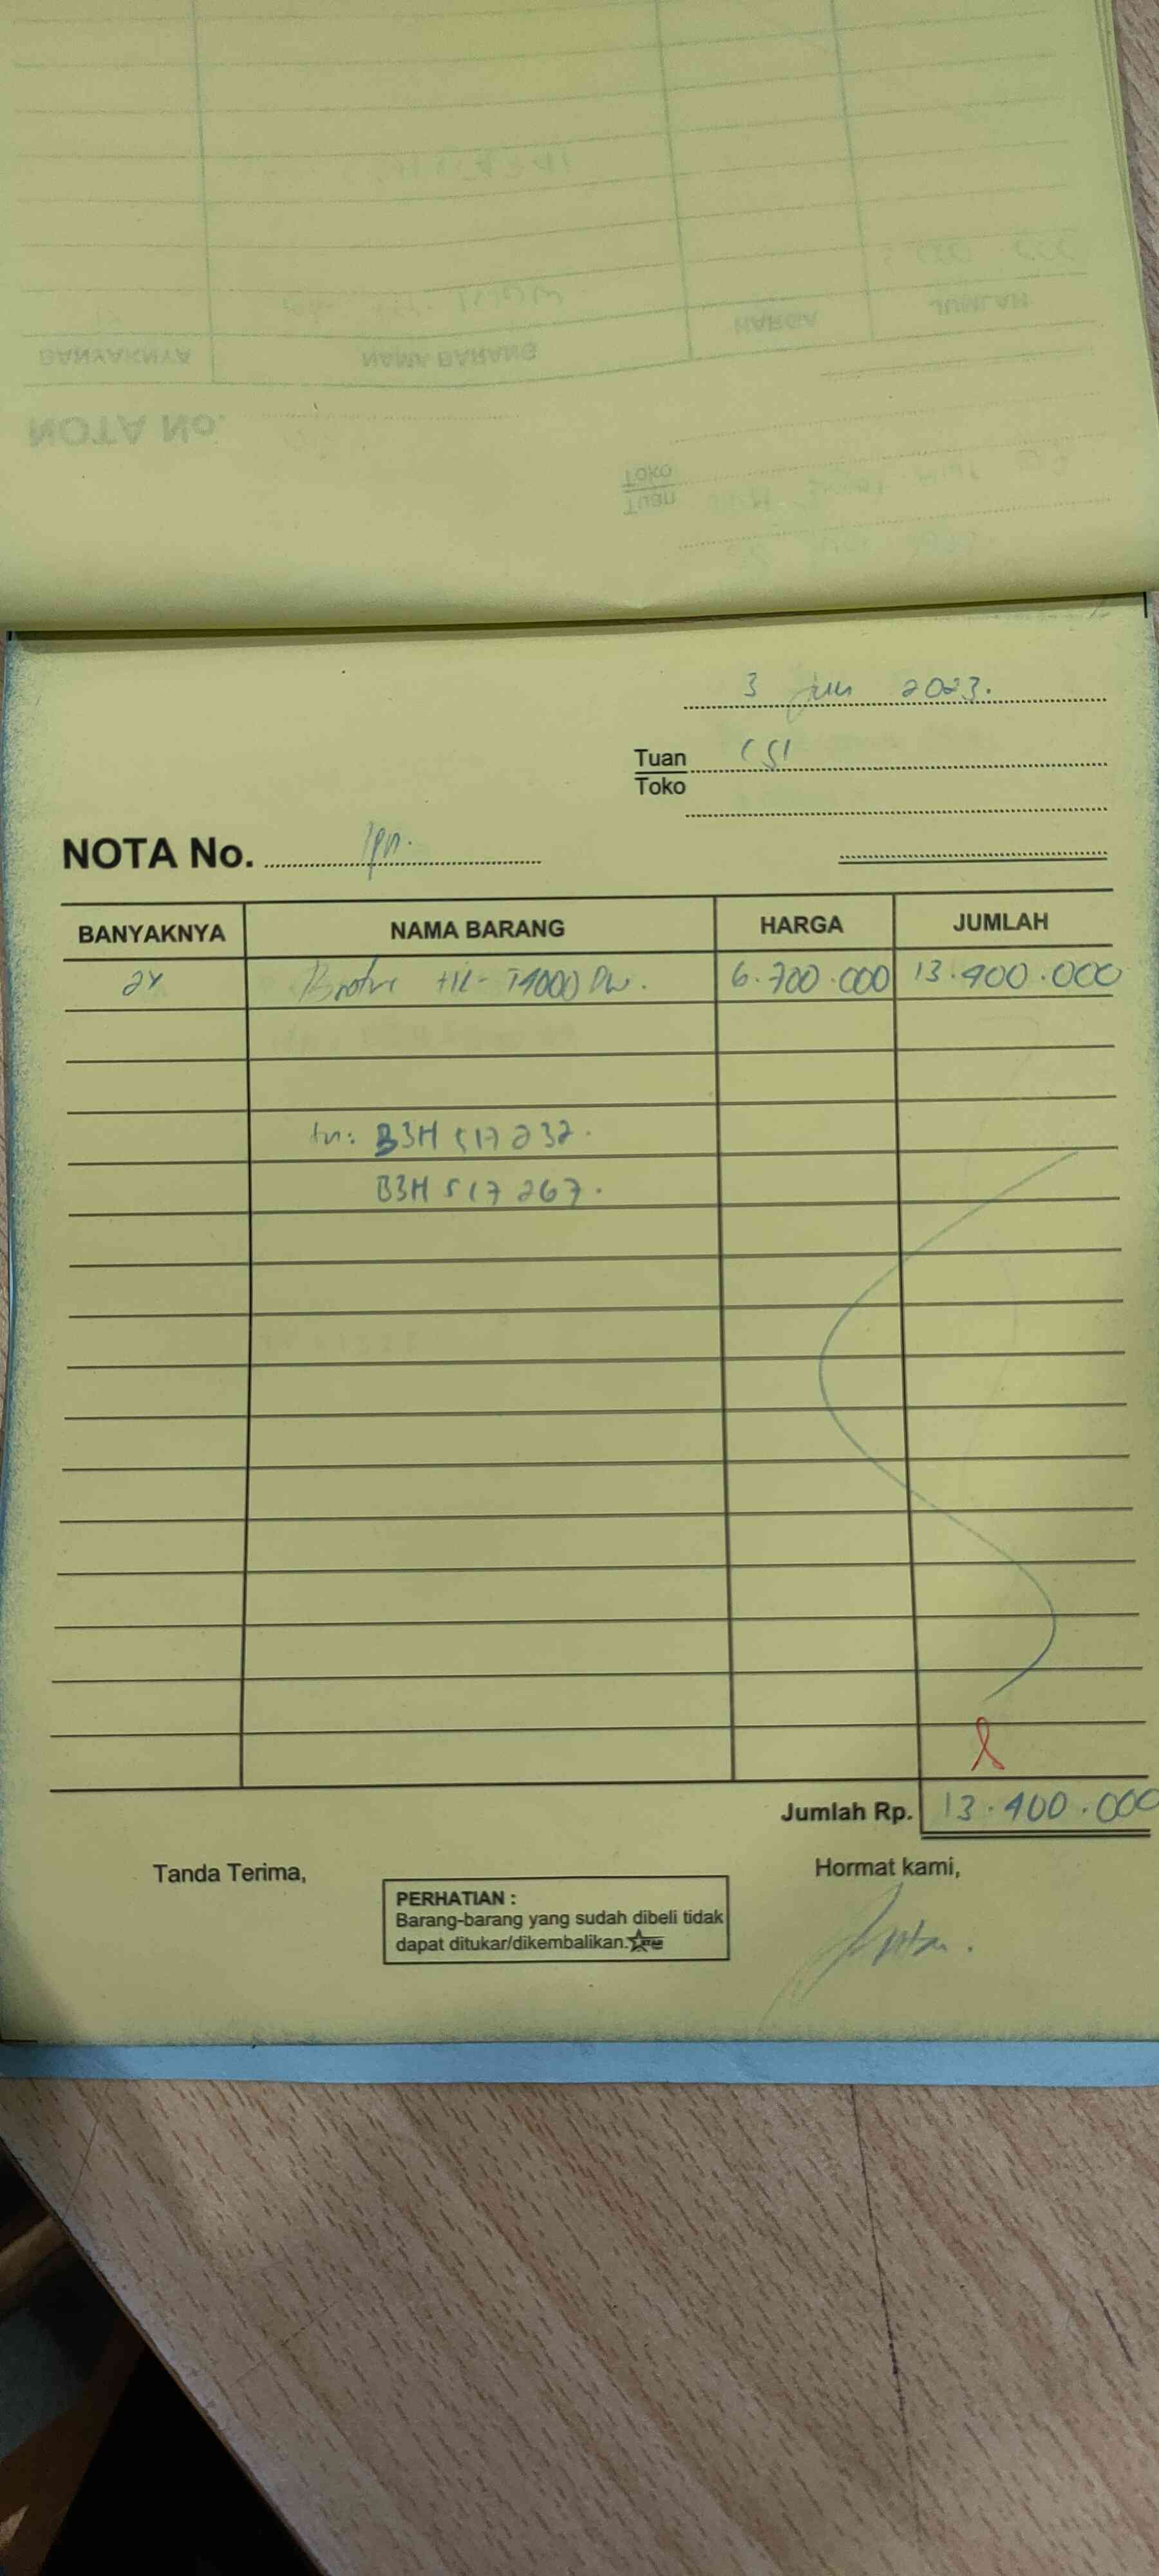 BANYAKNYA NAMA BARANG HARGA JUMLAH
NOTA No.
Toko
Tuan
3 2023.
Tuan CSI
Toko
NOTA No.
BANYAKNYA NAMA BARANG HARGA JUMLAH
HL-T4000 DW. 6.700.000 13.400.000
B3H 517232.
B3H 517267.
Jumlah Rp. 13.400.000
Tanda Terima,
Hormat kami,
PERHATIAN :
Barang-barang yang sudah dibeli tidak
dapat ditukar/dikembalikan.